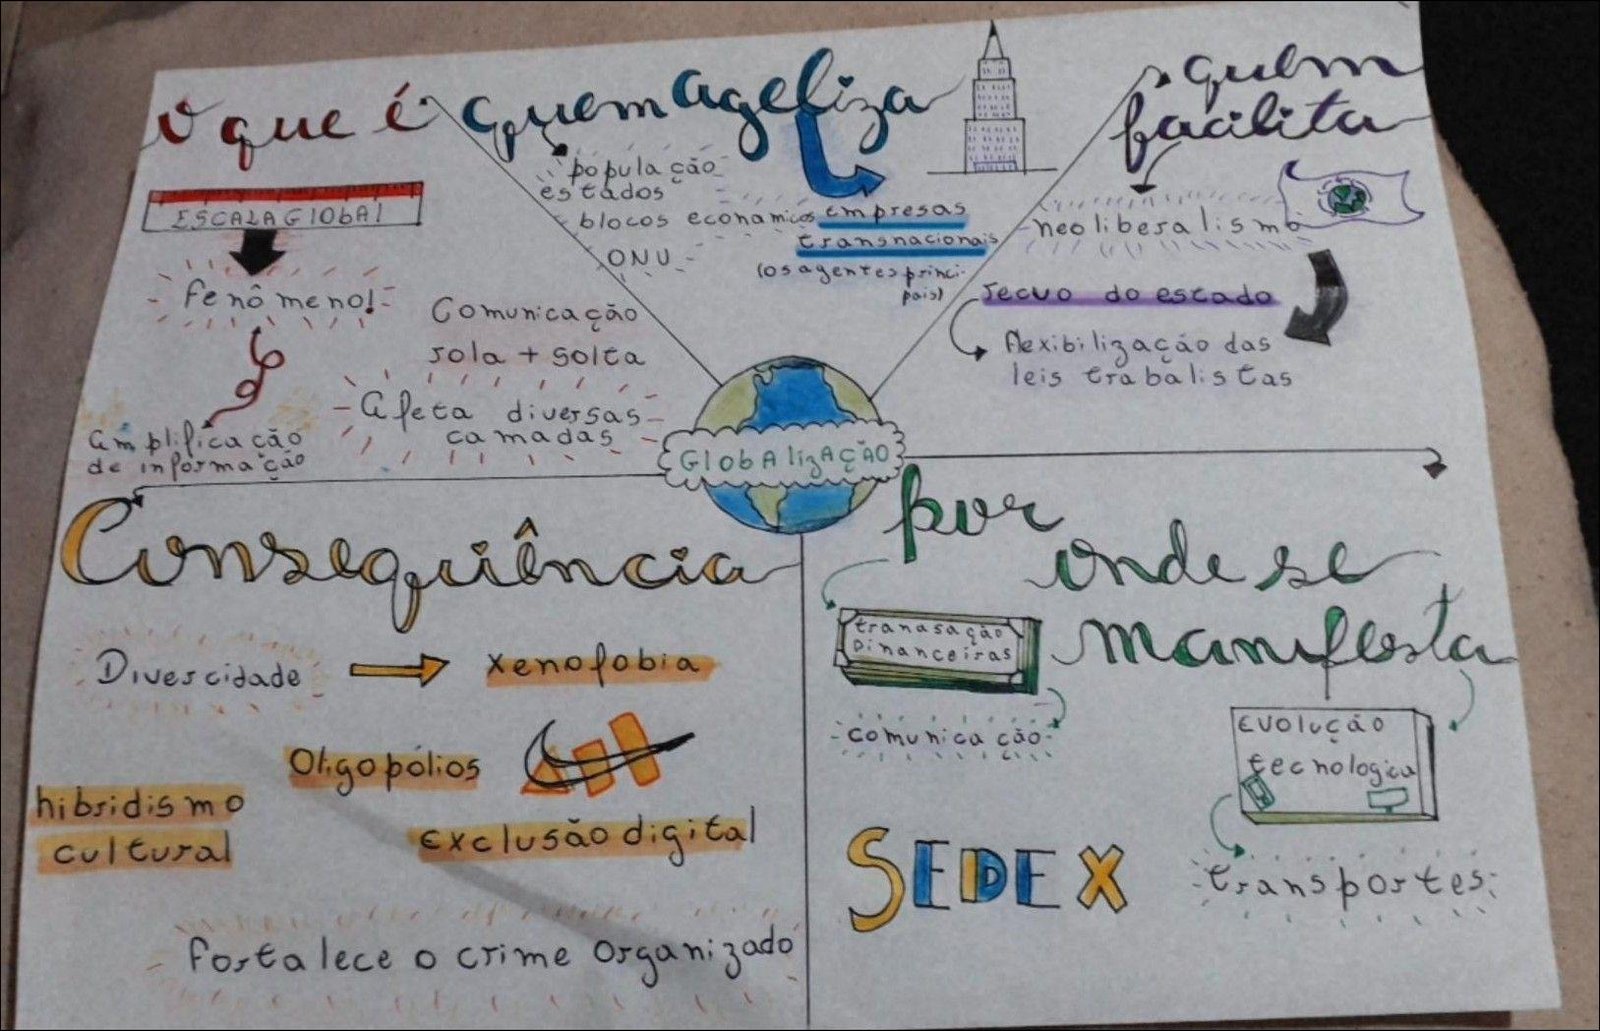 o que é
ESCALA GlObAl
fenômeno!
amplificação
de informação
Comunicação
sola + solta
Afeta diversas
camadas
quem ageliza
população
estados
blocos econamicos
ONU
empresas
transnacionais
(os agentes princi-
pais)
quem
facilita
neoliberalismo
recuo do estado
flexibilização das
leis trabalistas
GlobAlizAÇÃO
Consequência
Divercidade
xenofobia
Oligopólios
hibridismo
cultural
exclusão digital
fortalece o crime organizado
por
onde se
manifesta
tranasação
Financeiras
comunicação
Evolução
tecnologica
transportes
SEDEX